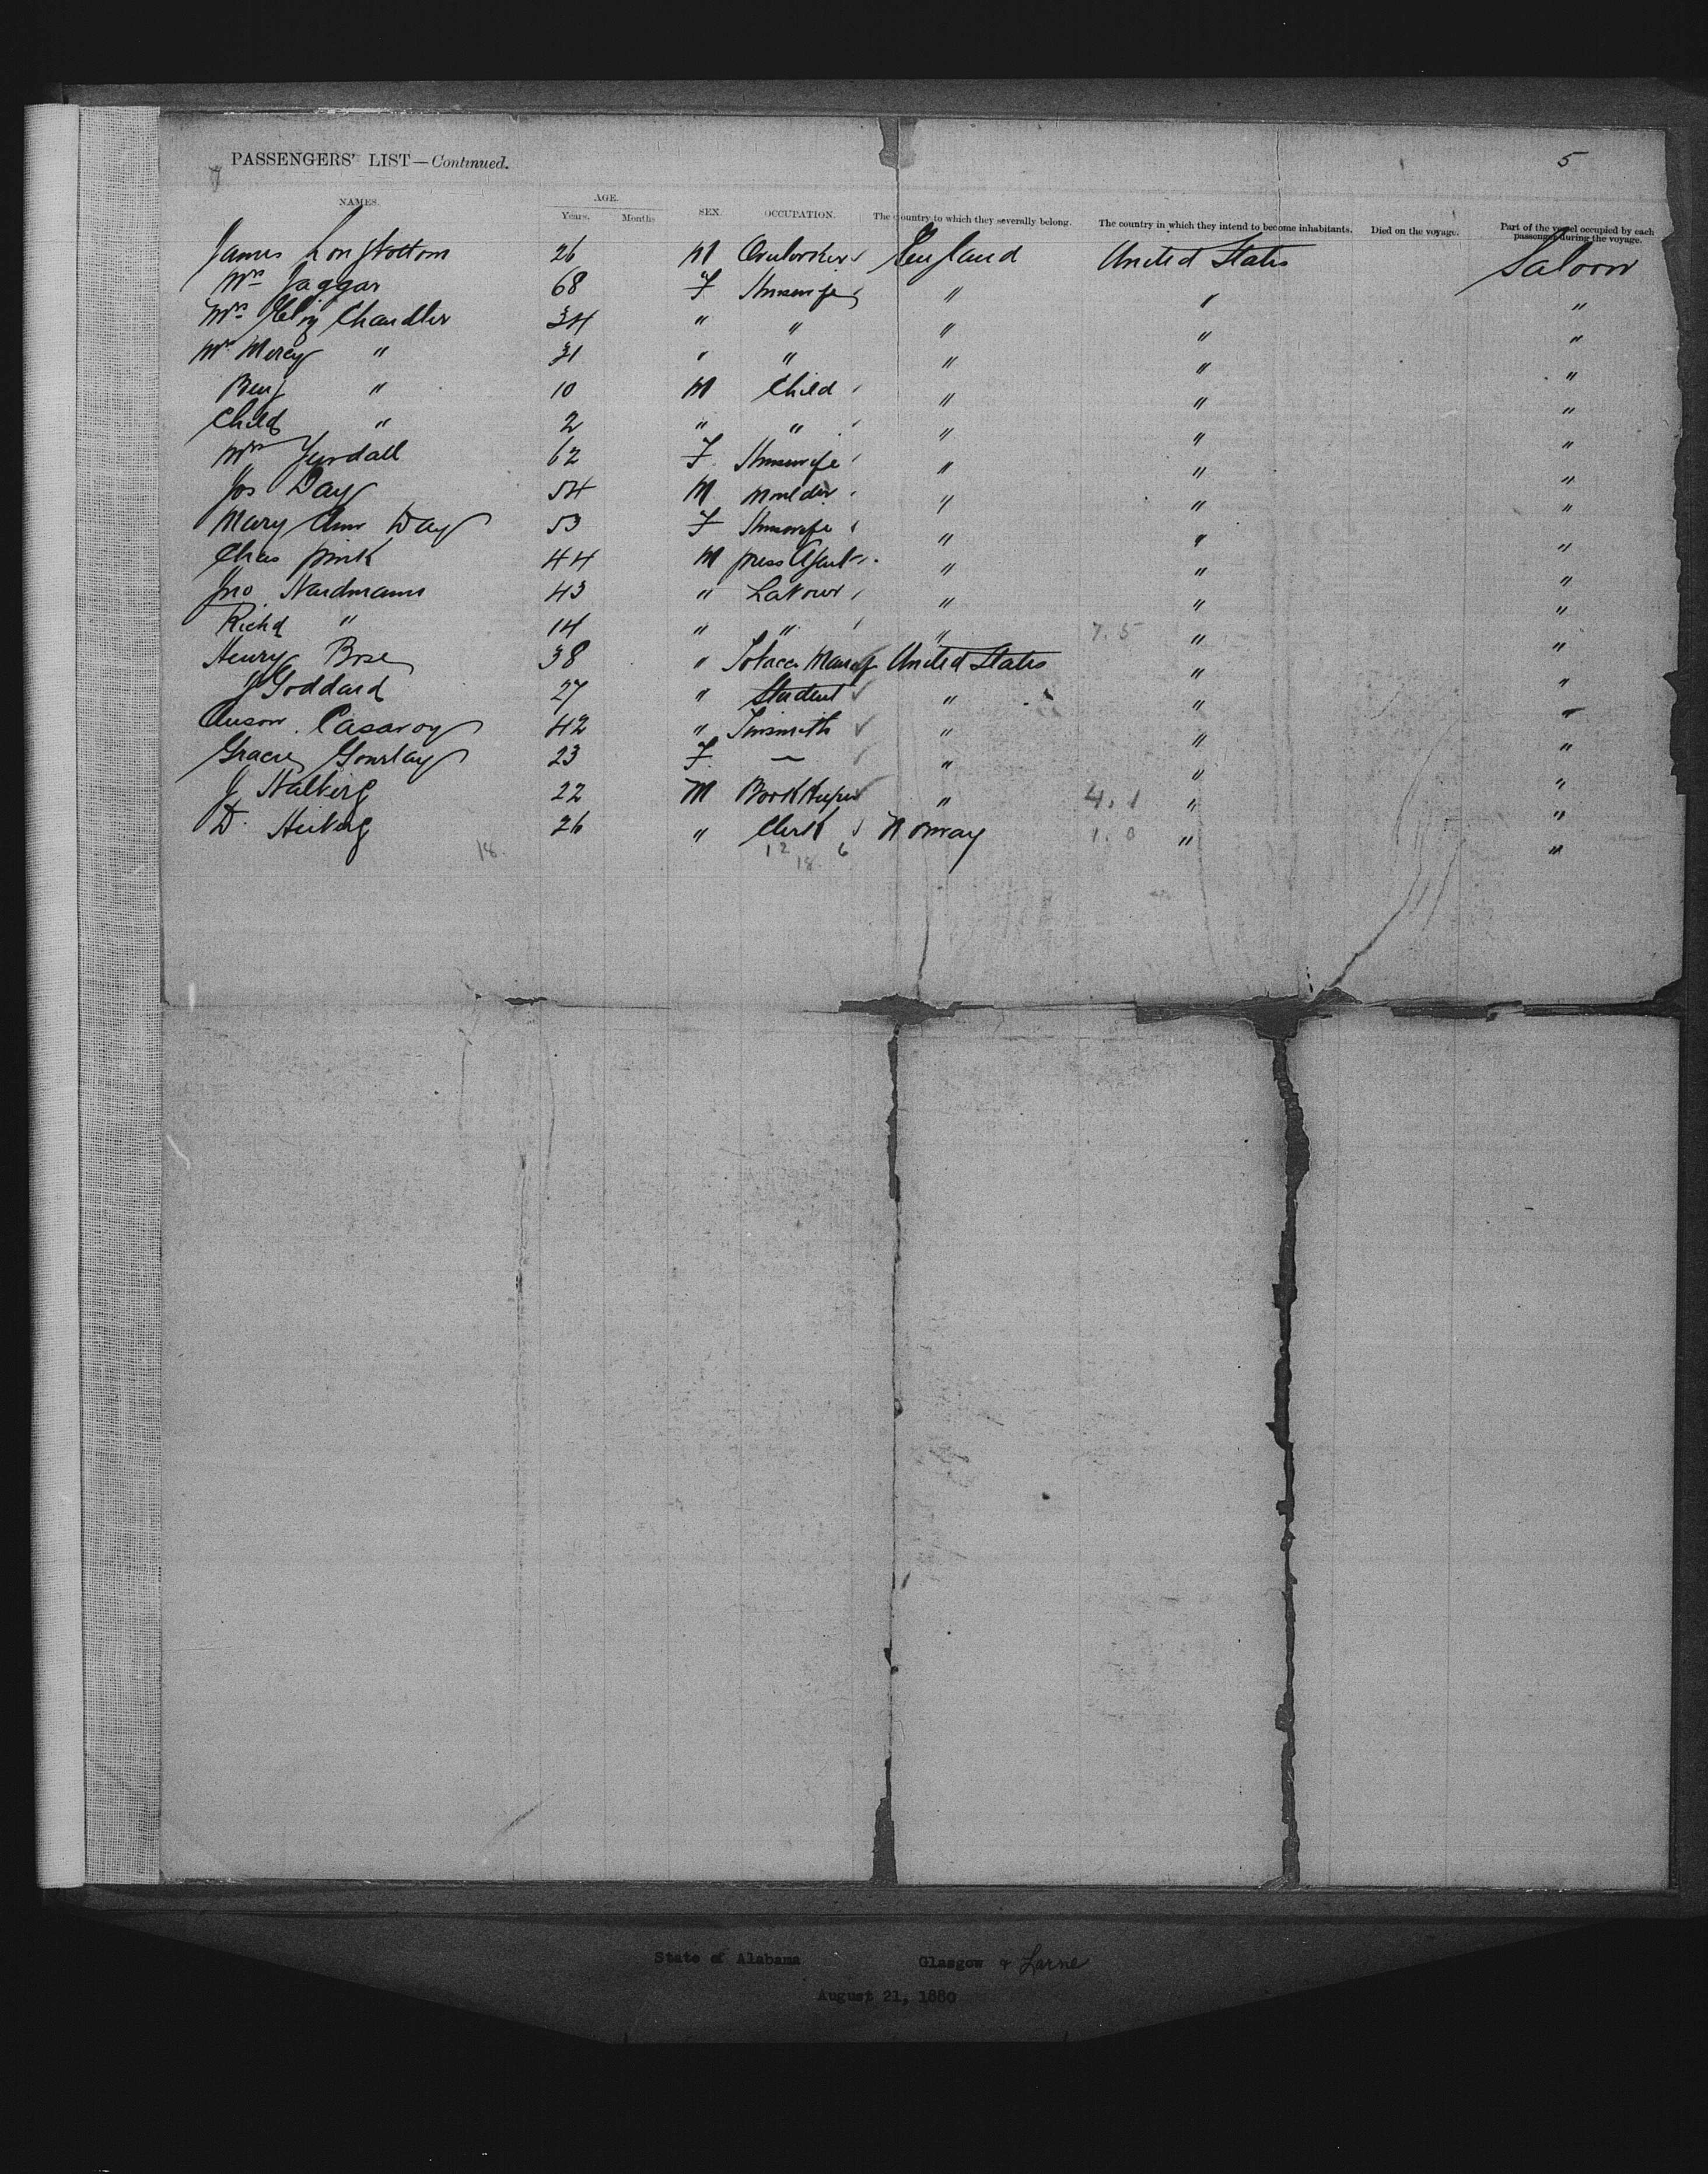 PASSENGERS' LIST—Continued.
5
NAMES. AGE. Years. Months SEX. OCCUPATION. The country to which they severally belong. The country in which they intend to become inhabitants. Died on the voyage. Part of the vessel occupied by each passenger during the voyage.
James Longbottom 26 M England United States Saloon
Mrs Jaggar 68 F Housewife " " "
Mrs Eliz Chandler 34 " " " " "
Mrs Mercy " 31 " " " " "
Benj " 10 M Child " " "
Child " 2 " " " " "
Mrs 62 F Housewife " " "
Jos Day 54 M Moulder " " "
Mary Ann Day 53 F Housewife " " "
Chas pink 44 M press Agent " " "
Jno Hardmann 43 " Labour " " "
Richd " 14 " " " 7. 5 " "
Henry Bose 38 " Tobacco Manuf United States " "
J Goddard 27 " Student " " "
Anson 42 " Tinsmith " " "
Gracie Gourlay 23 F — " " "
J Halberg 22 M BookKeeper " 4. 1 " "
D. Heiberg 26 " Clerk Norway 1. 0 " "
18. 12 6
18
State of Alabama Glasgow & Larne
August 21, 1880